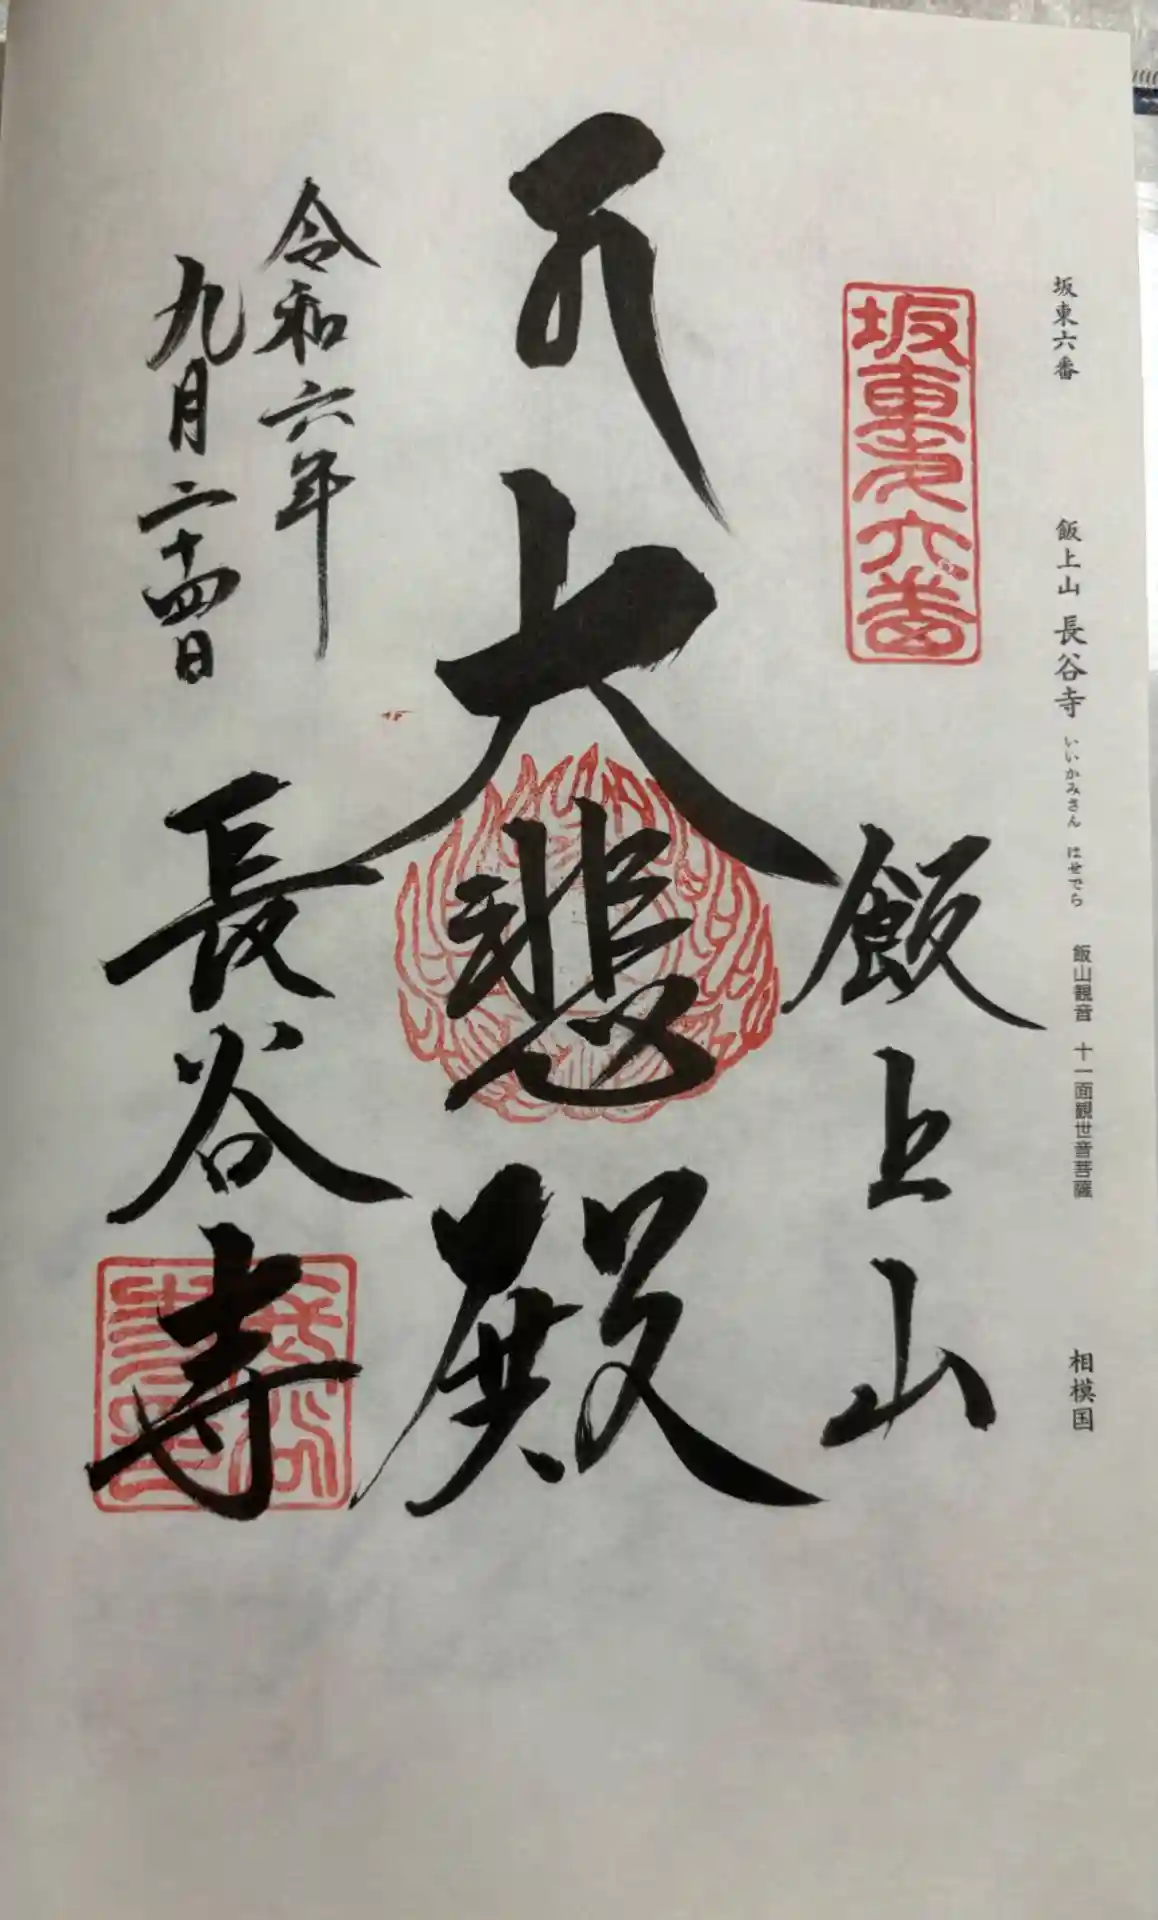 坂東六番 飯上山 長谷寺 いいかみさん はせでら 飯山観音 十一面観世音菩薩 相模国
坂東第六番
飯上山
大悲殿
令和六年
九月二十四日
長谷寺